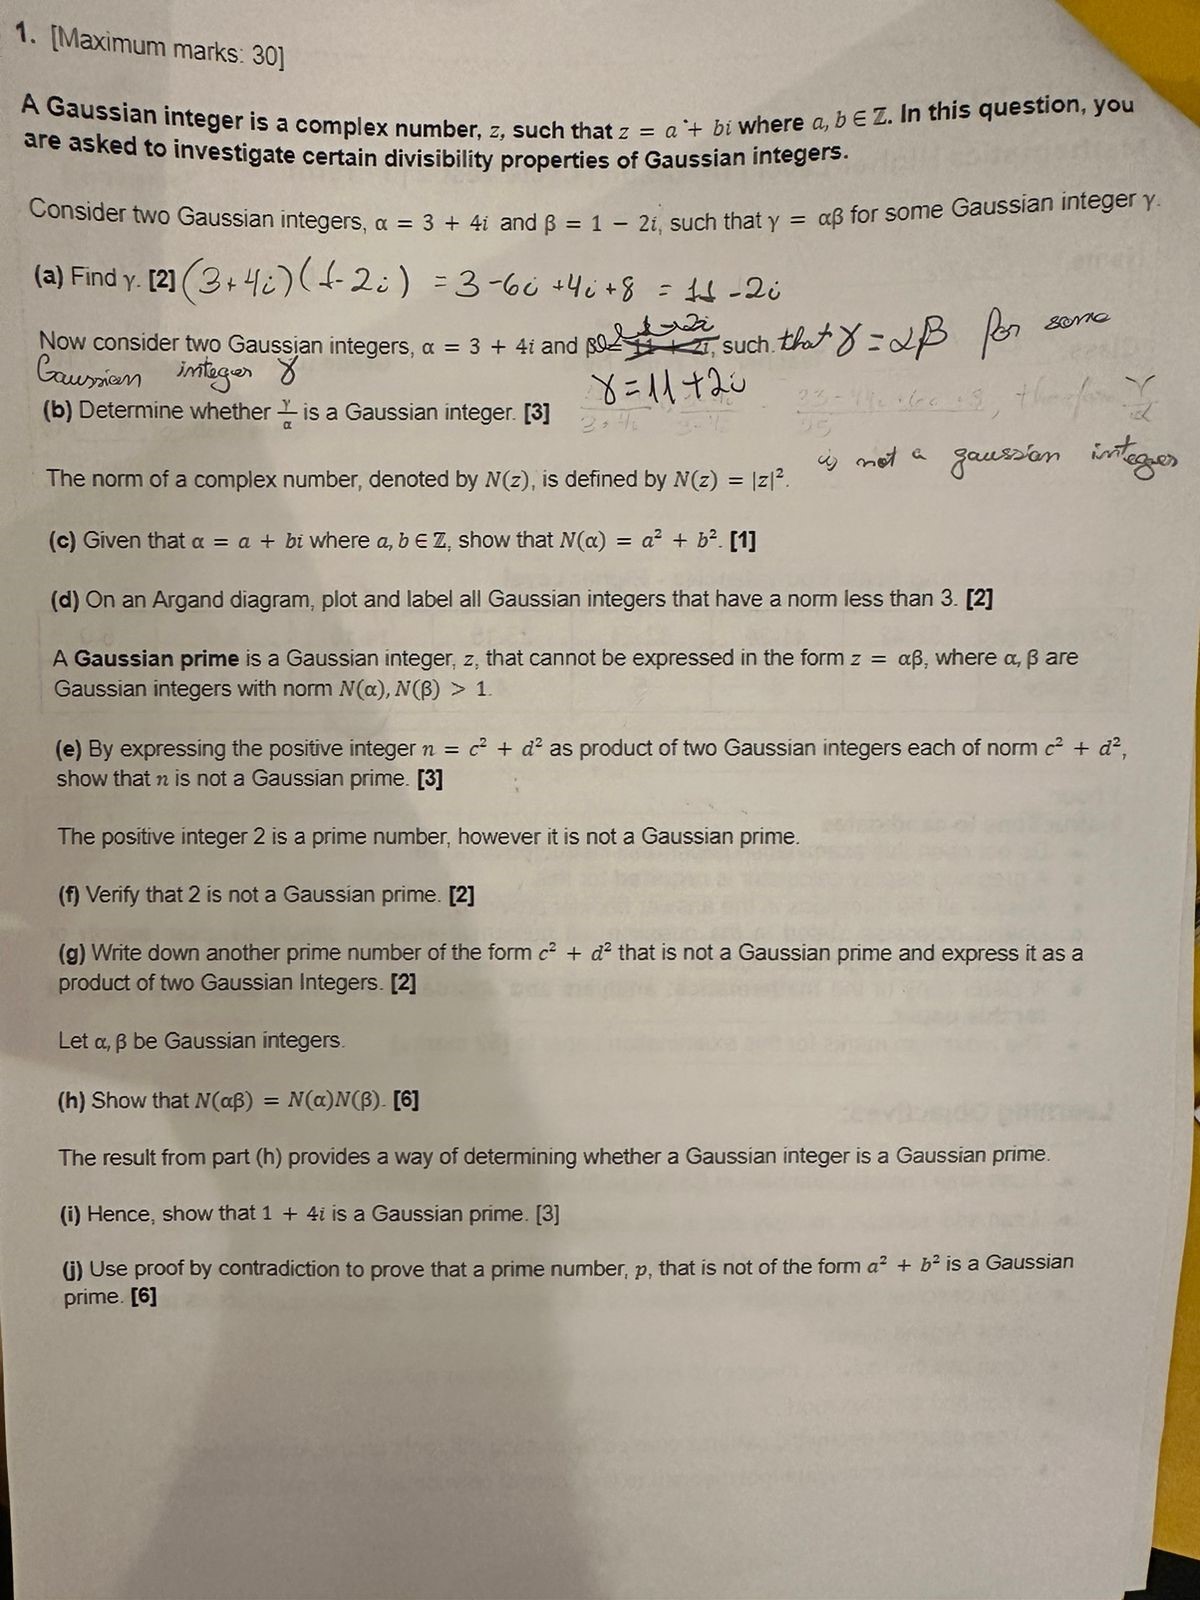 1. [Maximum marks: 30]
A Gaussian integer is a complex number, z, such that z = a + bi where a, b ∈ ℤ. In this question, you
are asked to investigate certain divisibility properties of Gaussian integers.
Consider two Gaussian integers, α = 3 + 4i and β = 1 − 2i, such that γ = αβ for some Gaussian integer γ.
(a) Find γ. [2] (3+4i)(1-2i) = 3-6i+4i+8 = 11-2i
Now consider two Gaussian integers, α = 3 + 4i and β = 11 + 2i, such that γ=αβ for some
Gaussian integer γ
γ=11+2i
(b) Determine whether γ/α is a Gaussian integer. [3]
is not a gaussian integer
The norm of a complex number, denoted by N(z), is defined by N(z) = |z|².
(c) Given that α = a + bi where a, b ∈ ℤ, show that N(α) = a² + b². [1]
(d) On an Argand diagram, plot and label all Gaussian integers that have a norm less than 3. [2]
A Gaussian prime is a Gaussian integer, z, that cannot be expressed in the form z = αβ, where α, β are
Gaussian integers with norm N(α), N(β) > 1.
(e) By expressing the positive integer n = c² + d² as product of two Gaussian integers each of norm c² + d²,
show that n is not a Gaussian prime. [3]
The positive integer 2 is a prime number, however it is not a Gaussian prime.
(f) Verify that 2 is not a Gaussian prime. [2]
(g) Write down another prime number of the form c² + d² that is not a Gaussian prime and express it as a
product of two Gaussian Integers. [2]
Let α, β be Gaussian integers.
(h) Show that N(αβ) = N(α)N(β). [6]
The result from part (h) provides a way of determining whether a Gaussian integer is a Gaussian prime.
(i) Hence, show that 1 + 4i is a Gaussian prime. [3]
(j) Use proof by contradiction to prove that a prime number, p, that is not of the form a² + b² is a Gaussian
prime. [6]